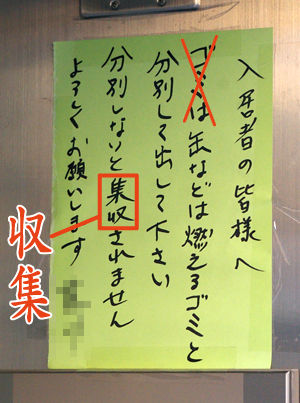 入居者の皆様へ
ゴミは缶などは燃えるゴミと
分別して出して下さい
分別しないと集収されません
よろしくお願いします
収集